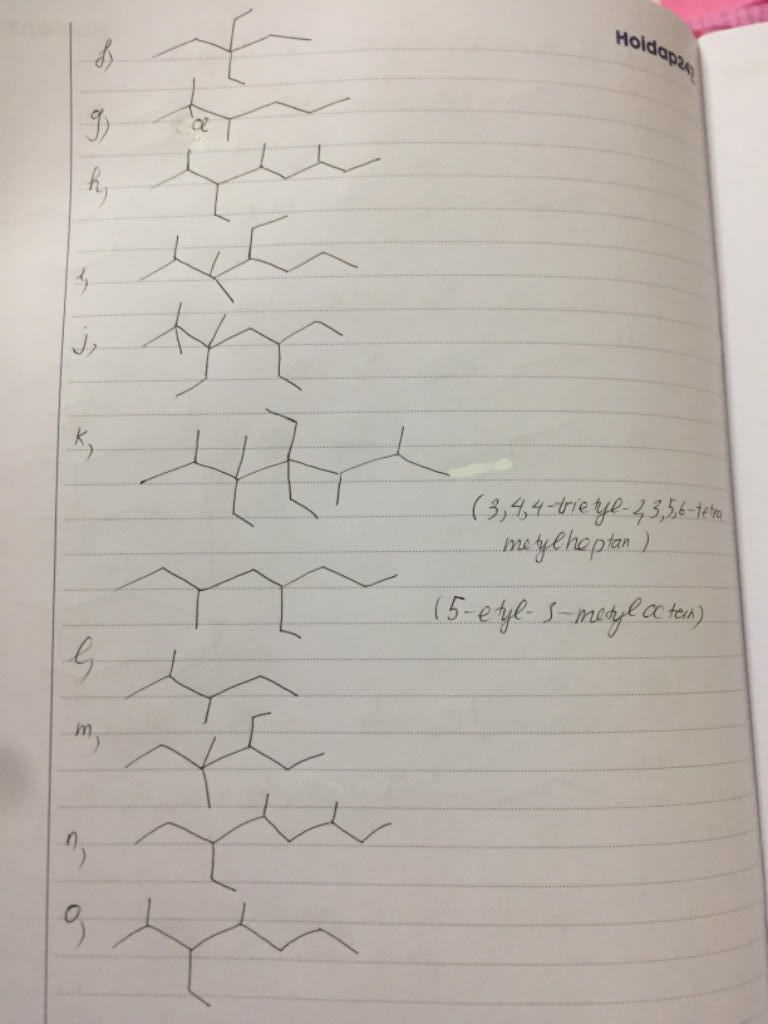 f,
Hoidap247
g)
α
h,
i,
j,
k,
(3,4,4-trietyl-2,3,5,6-tetra
metylheptan)
(5-etyl-3-metyloctan)
l,
m,
n,
o,